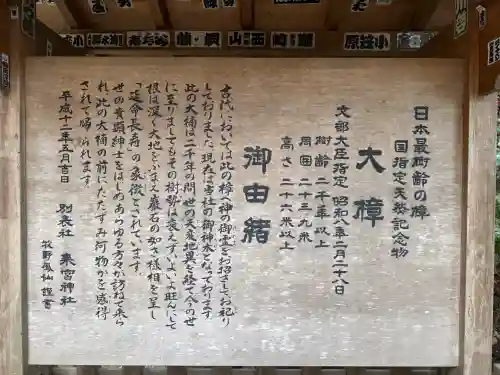 日本最樹齢の樟
国指定天然記念物
大樟
文部大臣指定 昭和八年二月二十八日
樹齢 二千年以上
周囲 二十三九米
高さ 二十六米以上
御由緒
古代においては此の樟に神の御霊をお招きしお祀り
しておりました 現在は当社の御神木となっております
此の大樟は二千年の間 世の天変地異を経て今の世
に至りましてもその樹勢は衰えずいよいよ旺んにして
根は深く大地をふまえ巌石の如き様相を呈し
「延命長寿」の象徴とされています
世の貴顕紳士をはじめあらゆる方々が訪ねて来ら
れ 此の大樟の前にたたずみ何物かを感得
されて帰られます
平成十二年五月吉日
別表社 来宮神社
牧野 謹書